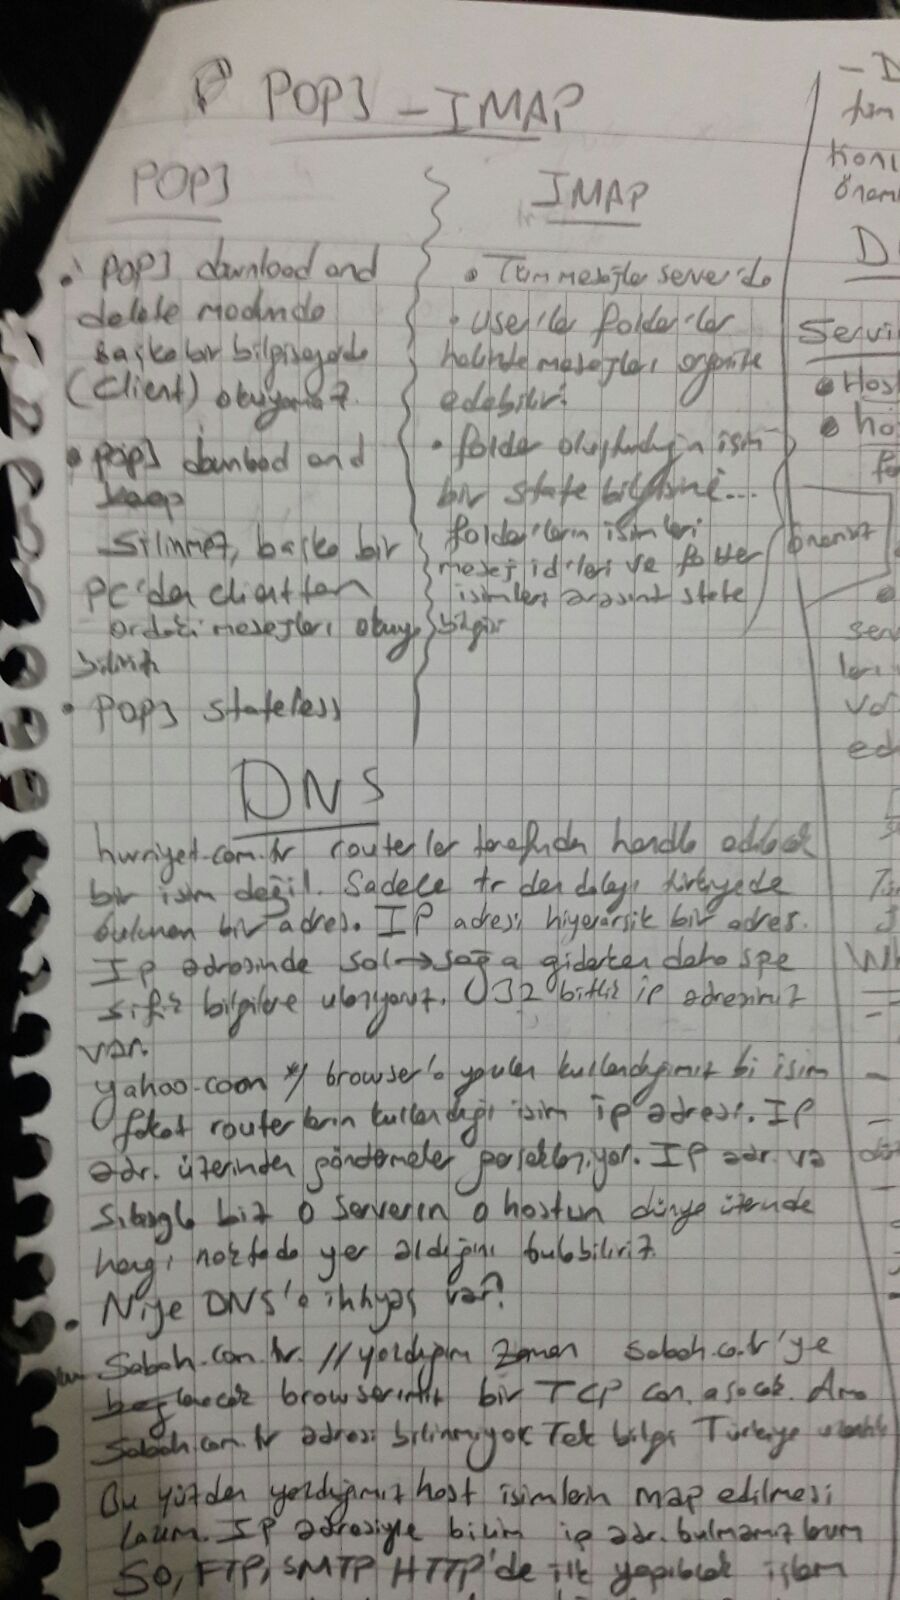 POP3 - IMAP
POP3
• POP3 download and
delete modunda
başka bir bilgisayarda
(Client) okuyamaz.
• POP3 download and
keep
silinmez, başka bir
PC'den clienttan
ordaki mesajları okuya
biliriz
• POP3 stateless
IMAP
• Tüm mesajlar serverda
• User'lar folder'lar
halinde mesajları organize
edebilir.
• folder oluşturduğu için
bir state bilgisini...
folder'ların isimleri
mesaj id'leri ve folder
isimleri arasında state
bilgisi
DNS
hurriyet.com.tr routerler tarafından handle edilecek
bir isim değil. Sadece tr den dolayı türkiyede
bulunan bir adres. IP adresi hiyerarşik bir adres.
Ip adresinde sol→sağa giderken daha spe
sifik bilgilere ulaşıyoruz. 32 bitlik ip adresimiz
var.
yahoo.com browser'a yazılan kullandığımız bi isim
fakat routerların kullandığı isim ip adresi. IP
adr. üzerinden göndermeler gerçekleşiyor. IP adr. va
sıtasıyla biz o serverın o hostun dünya üzerinde
hangi noktada yer aldığını bulabiliriz.
• Niye DNS'e ihtiyaç var?
Sabah.com.tr. // yazdığım zaman sabah.co.tr'ye
bağlanacak browserımız bir TCP con. açacak. Ama
Sabah.com.tr adresi bilinmiyor Tek bilgi Türkiye
Bu yüzden yazdığımız host isimlerin map edilmesi
lazım. IP adresiyle bizim ip adr. bulmamız lazım
SO, FTP, SMTP HTTP'de ilk yapılacak işlem
önemli
- D
Servi
• Host
• ho